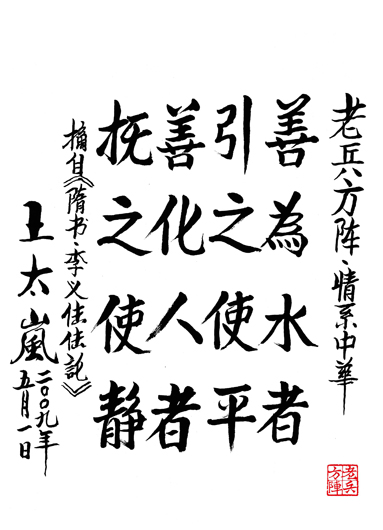 老兵方阵、情系中華
善為水者
引之使平
善化人者
抚之使静
摘自《隋书·李义》
王太嵐
二〇〇九年
五月一日
老兵
方陣